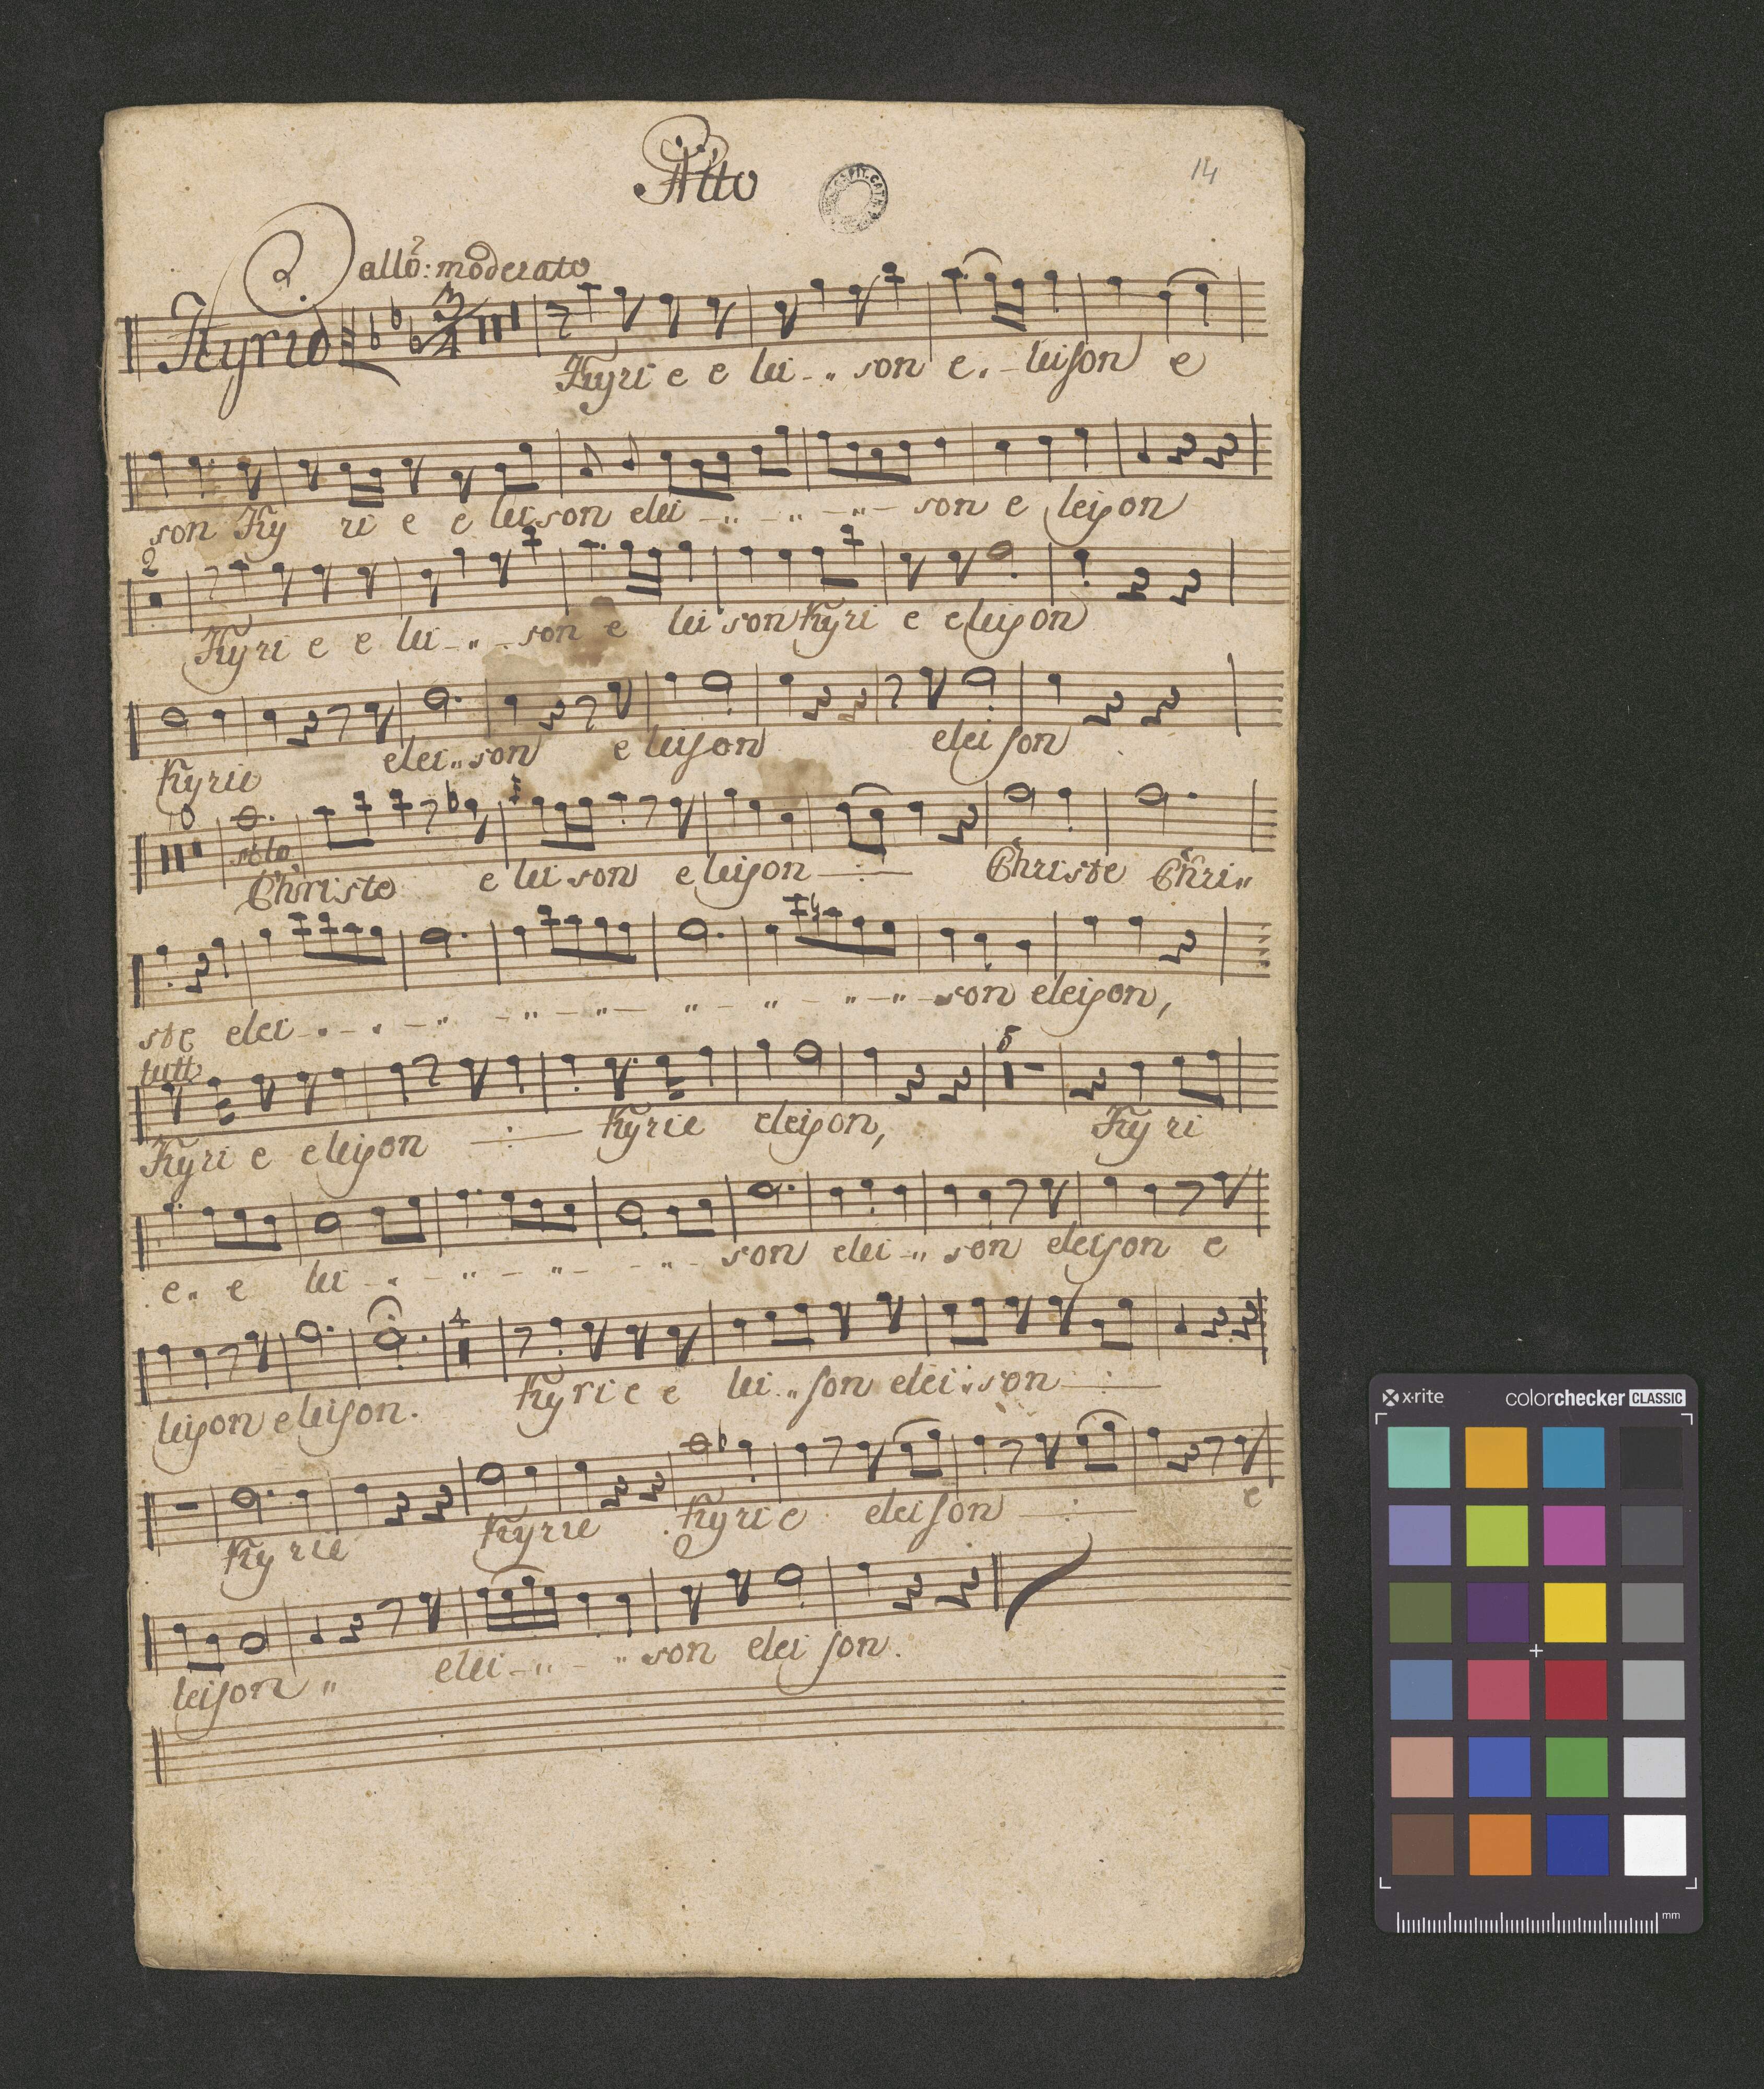 Alto
14
allo: moderato
Kyrie
3/4
Kyri e e lei - " son e. - leison e
son Ky ri e e leison elei - " - " - " - son e leison
2
Kyri e e lei - " - son e lei son Kyri e eleison
Kyrie elei " son e leison elei son
10
solo
Christe e lei son eleison - : - Christe Chri "
ste elei - . - . - " - " - " - " - " - " - " - son eleison,
tutti
8
Kyri e eleison - : - Kyrie eleison, Ky ri
e. " e lei - " - " - " - " - son elei - " son eleison e
4
leison eleison. Kyri e e lei " son elei " son - : -
Ky rie Kyrie Kyrie eleison - : - e
leison " elei - " - " son elei son.
x·rite colorchecker CLASSIC
mm